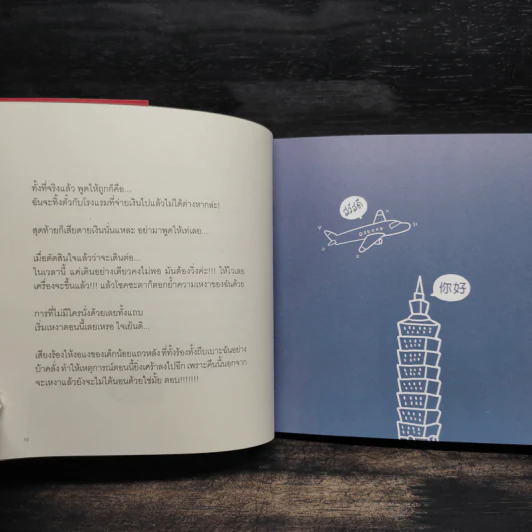 ทั้งที่จริงแล้ว พูดให้ถูกก็คือ...
ฉันจะทิ้งตั๋วกับโรงแรมที่จ่ายเงินไปแล้วไม่ได้ต่างหากล่ะ!
สุดท้ายก็เสียดายเงินนั่นแหละ อย่ามาพูดให้เท่เลย...
เมื่อตัดสินใจแล้วว่าจะเดินต่อ...
ในเวลานี้ แค่เดินอย่างเดียวคงไม่พอ มันต้องวิ่งค่ะ!!! ให้ไวเลย
เครื่องจะขึ้นแล้ว!!! แล้วโชคชะตาก็ตอกย้ำความเหงาของฉันด้วย
การที่ไม่มีใครนั่งด้วยเลยทั้งแถบ
เริ่มเหงาตอนนี้เลยเหรอ ใจเย็นดิ...
เสียงร้องไห้งอแงของเด็กน้อยแถวหลัง ที่ทั้งร้องทั้งถีบเบาะฉันอย่าง
บ้าคลั่ง ทำให้เหตุการณ์ตอนนี้ยิ่งเศร้าลงไปอีก เพราะคืนนี้นอกจาก
จะเหงาแล้วยังจะไม่ได้นอนด้วยใช่มั้ย ตอบ!!!!!!!
你好